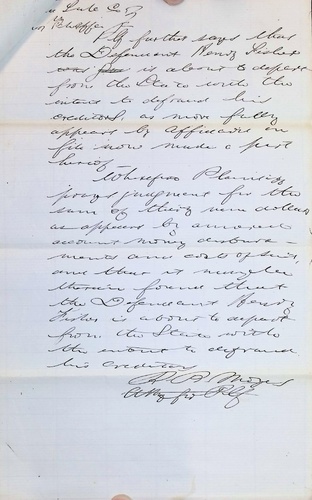 Plff further says that
the Defendant Henry Fisher
is about to depart
from the State with the
intent to defraud his
creditors, as more fully
appears by affidavit on
file now made a part
hereof
Wherefore Plaintiff
prays judgment for the
sum of thirty nine dollars
as appears by annexed
account money disburse-
ments and costs of suit,
and that it may be
therein found that
the Defendant Henry
Fisher is about to depart
from the State with
the intent to defraud
his creditors
Atty for Plff